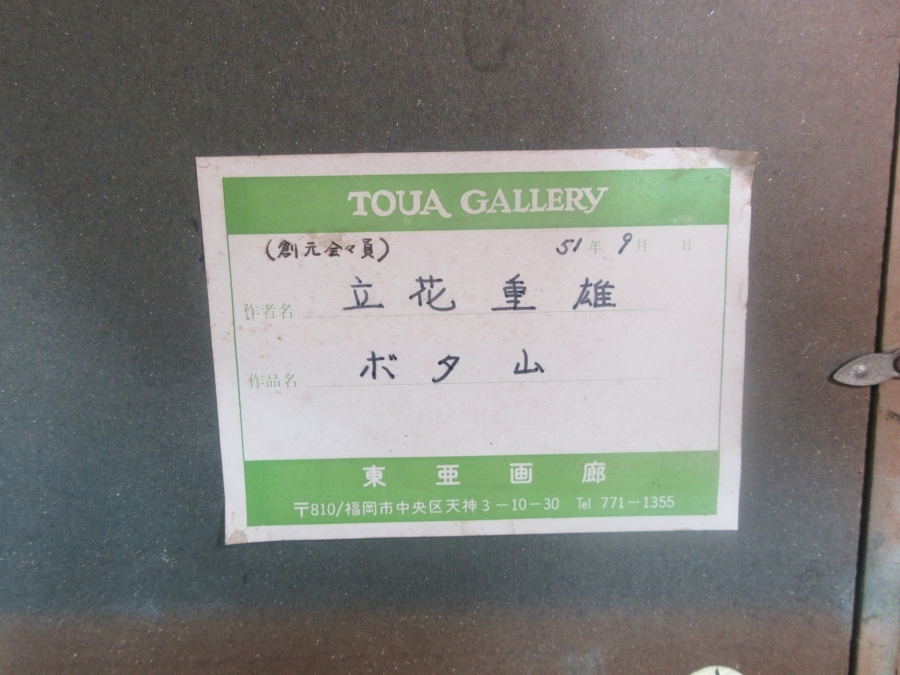 TOUA GALLERY
(創元会々員) 51年 9月 日
作者名 立花 重雄
作品名 ボタ山
東亜画廊
〒810/福岡市中央区天神3-10-30 Tel 771-1355